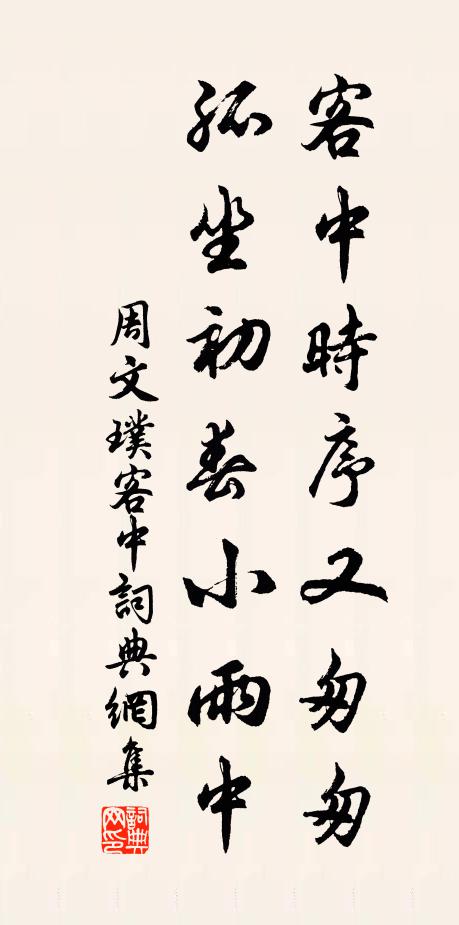 客中時序又匆匆
孤坐初春小雨中
周文璞客中詞典網集
詞典網印